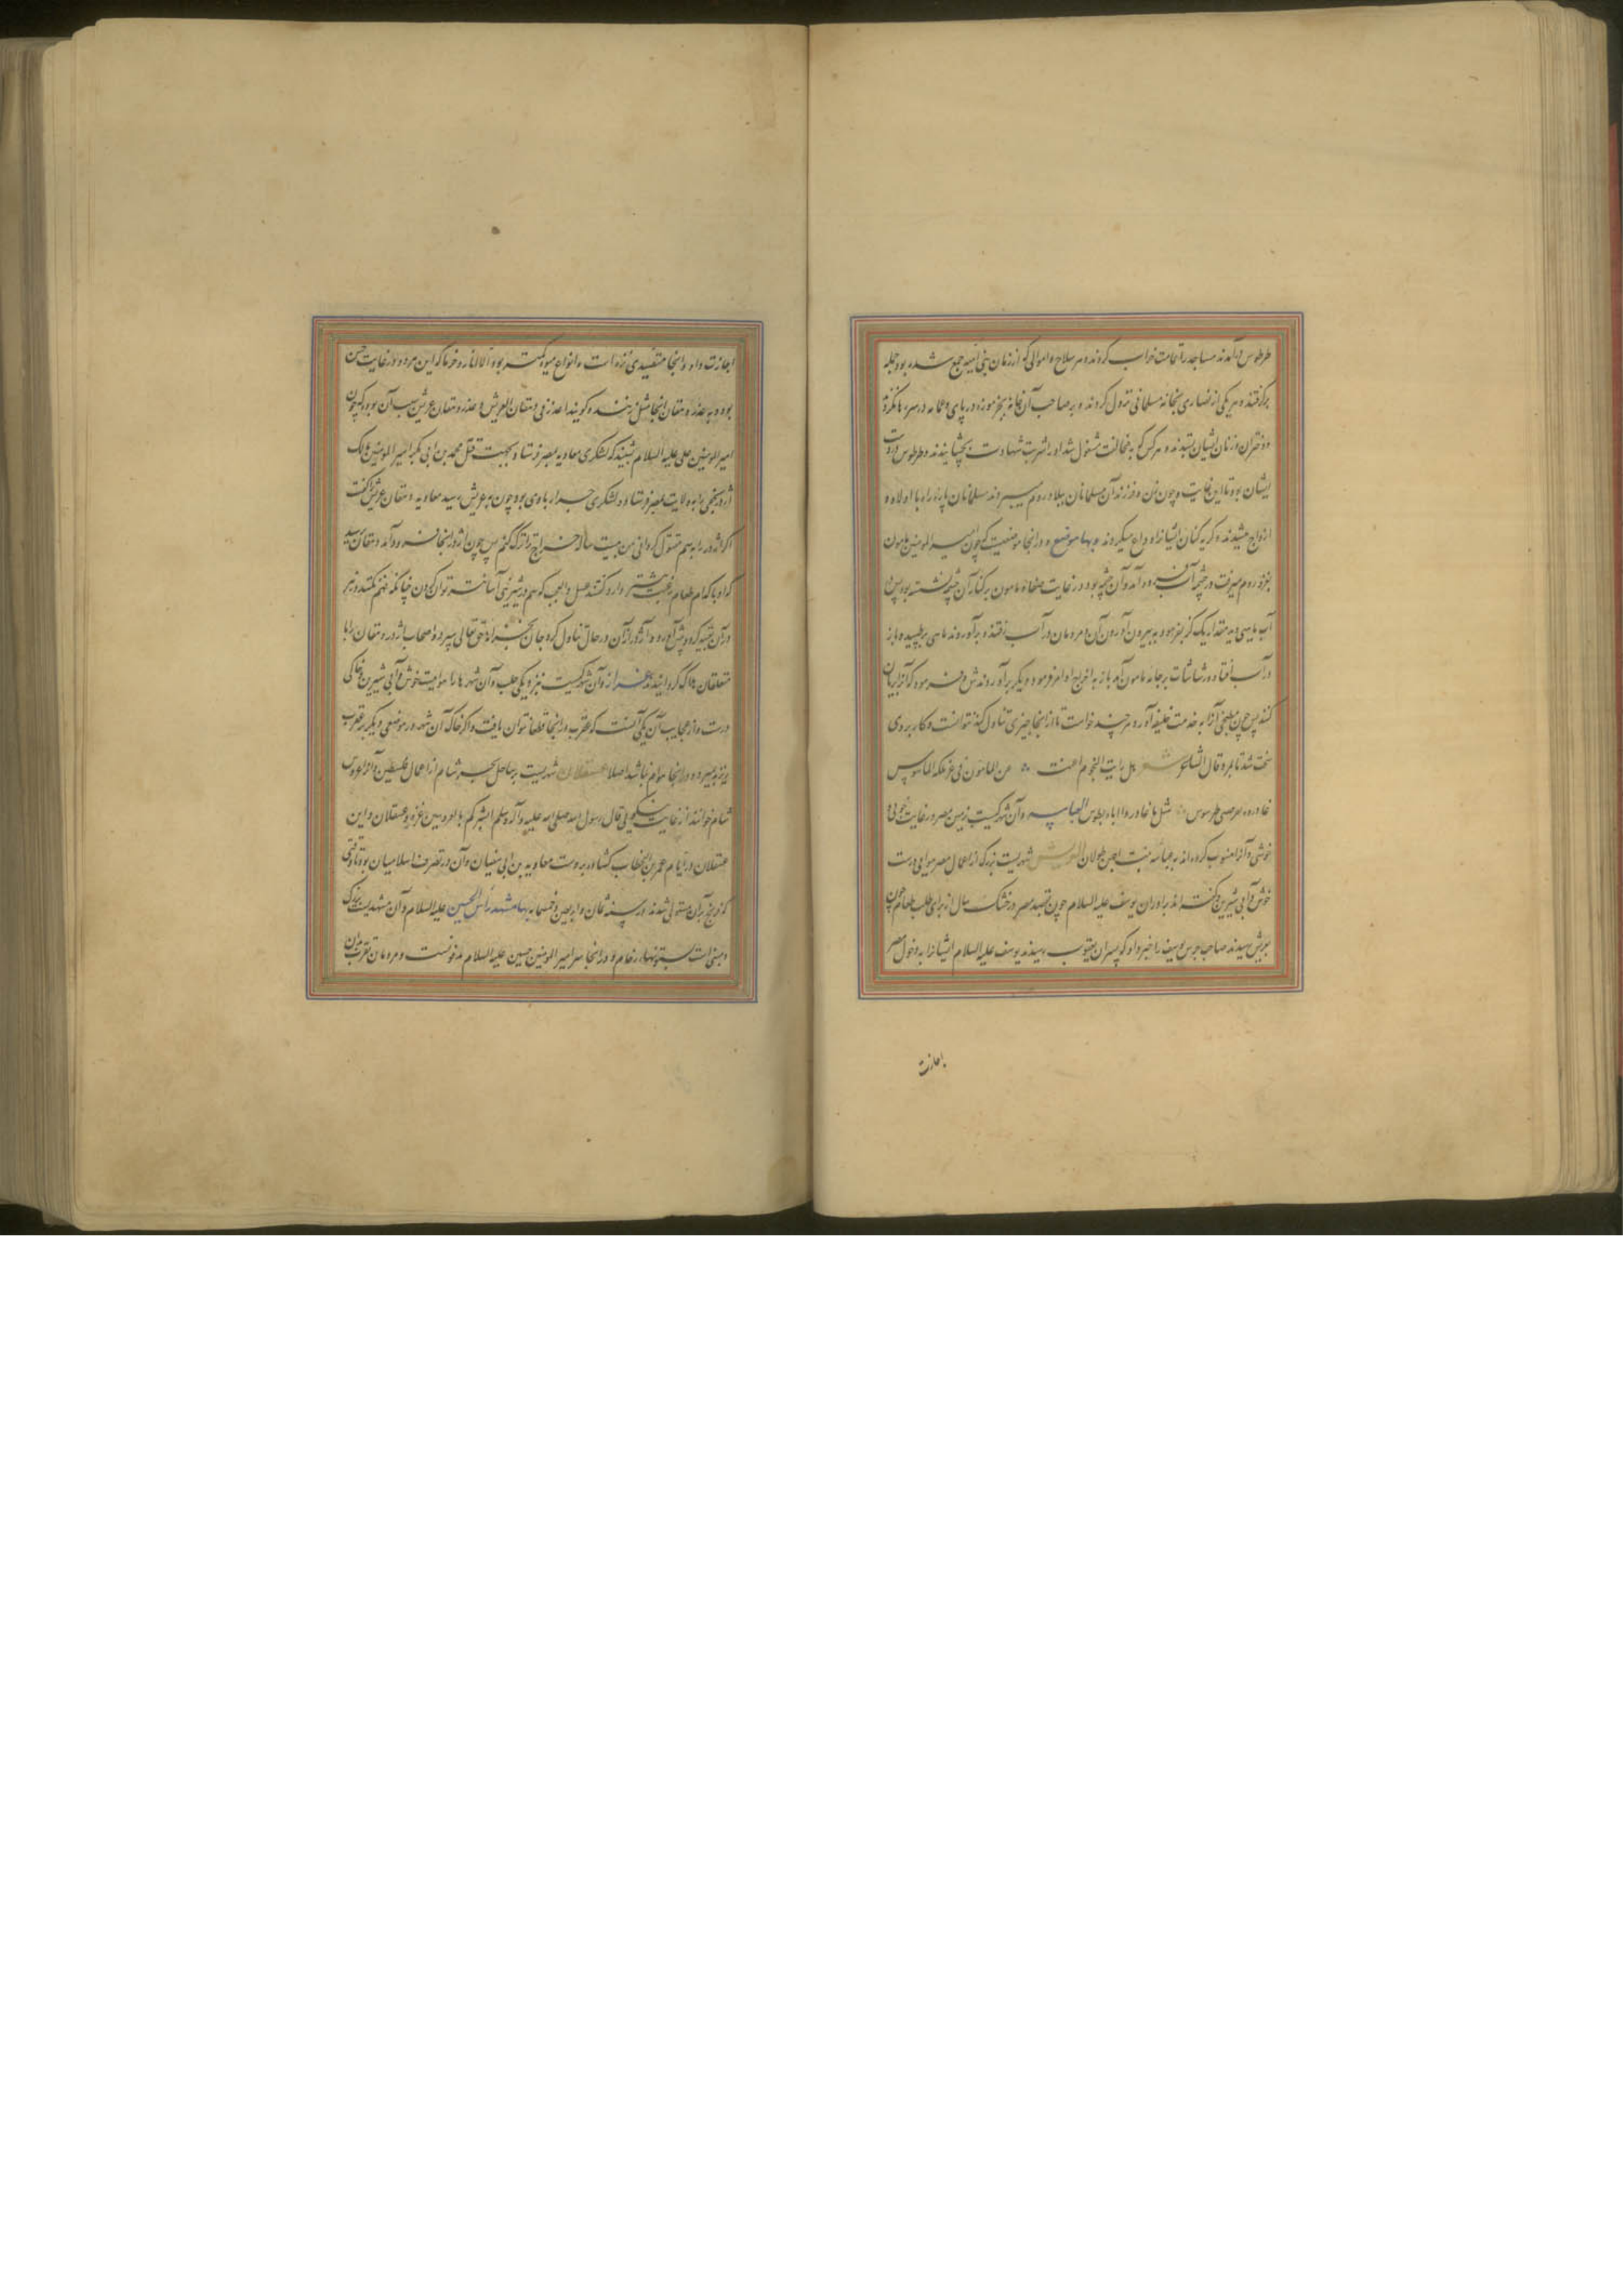 طرطوس درآمدند مساجد را تمامت خراب کردند و هر سلاح و اموالی که از زمان بنی امیه جمع شده بود جمله
برگرفتند و هر یکی از نصاری بخانه مسلمانی نزول کردند و بر صاحب آن خانه بجز موزه در پای و عمامه در سر رها نکرد
و دختران و زنان ایشان بستدند و هر کس که به مخالفت مشغول شد او را شربت شهادت بچشانیدند و طرطوس در دست
ایشان بود تا این غایت و چون زن و فرزند آن مسلمانان ببلاد روم میبردند مسلمانان پاره راه با اولاد و
ازواج میشدند و گریه کنان ایشانرا وداع میکردند و بها موضع و در انجا موضعیست که چون امیر المومنین مامون
بغزو روم میرفت در چشمه آب فرود آمد و آن چشمه بود در غایت صفا و مامون بر کنار آن چشمه نشسته بود پس در
آب ماهیی دید مقدار یک گز بفرمود به بیرون آوردن آن مردمان در آب افتاد و برآوردند ماهی برطپید و باز
در آب افتاد و رشاشات بر جامه مامون آمد باز به اخراج او امر فرمود و دیگر برآوردندش و فرمود که آنرا بریان
کنند پس چون مطبخی آنرا به خدمت خلیفه آورد هر چند خواست تا از انجا چیزی تناول کند نتوانست و کار بر وی
سخت شد تا بمرد قال الشاعر شعر هل رایت النجوم اغنت عن المامون فی عز ملکه الماسوس
غادروه بعرصتی طرسوس مثل ما غادروا اباه بطوس العباسیه و آن شهرکیست بزمین مصر در غایت خرمی و
خوشی و آنرا منسوب کرده اند به عباسه بنت احمد بن طولان العریش شهریست بزرگ از اعمال مصر هوایی درست
خوش و آبی شیرین و گفته اند برادران یوسف علیه السلام چون قصد مصر در خشک سال از برای طلب طعام چون
بعریش رسیدند صاحب حرس یوسف را خبر داد که پسران یعقوب رسیدند یوسف علیه السلام ایشانرا به دخول مصر
اجازت
اجازت داد و انجا متفیدی نزه است و انواع میوه کمتر بود الا انار و خرما که این هر دو در غایت حسن
بود و به عذر دهقان انجا مثل زنند و گویند اعذر من دهقان العریش و عذر دهقان عریش سبب آن بود که چون
امیر المومنین علی علیه السلام شنید که لشکری معاویه بمصر فرستاد و بجهت قتل محمد بن ابی بکر امیر المومنین مالک
اژدر نخعی را به ولایت بمصر فرستاد و لشکری جرار با وی بود چون به عریش رسید معاویه دهقان عریش را گفت
اگر اژدر را به سم مقتول گردانی من بیست ساله خراج ترا ترک کنم پس چون اژدر انجا فرود آمد دهقان پرسید
که او با کدام طعام رغبت بیشتر دارد گفتند عسل
درآن تعبیه کرد و پیش آورد و اژدر از آن در حال تناول کرد جان بحضرت حق تعالی سپرد و اصحاب اژدر دهقان را با
متعلقان هلاک گردانیدند عزاز و آن شهرکیست نزدیکی حلب و آن شهر را هواییست خوش و آبی شیرین و خاکی
درست و از عجایب آن یکی آنست که عقرب در انجا قطعا نتوان یافت و اگر خاک آن شهر در موضعی دیگر بر عقرب
ریزند بمیرد و در انجا هوام نباشد اصلا عسقلان شهریست بر ساحل بحر شام از اعمال فلسطین و آنرا عروس
شام خوانند از غایت نیکویی قال رسول الله صلی الله علیه و آله وسلم ابشرکم بالعروسین غزه و عسقلان و این
عسقلان در ایام عمر بن الخطاب گشاده بر دست معاویه بن ابی سفیان و آن در تصرف اسلامیان بود تا وقتی
که فرنج بر آن مستولی شدند در سنه ثمان و اربعین و خمسمایه بها مشهد رأس الحسین علیه السلام و آن مشهدیست بزرگ
و مبنی است بستونهای رخام و در انجا سر امیر المومنین حسین علیه السلام مدفونست و مردمان تقرب بدان